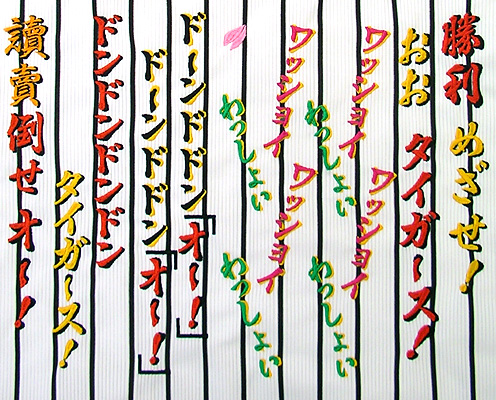 勝利 めざせ!
おお タイガース!
ワッショイ ワッショイ
わっしょい わっしょい
ワッショイ ワッショイ
わっしょい わっしょい
ドーンドドン「オ〜!」
ドーンドドン「オ〜!」
ドンドンドンドン
タイガ〜ス!
讀賣倒せオ〜!